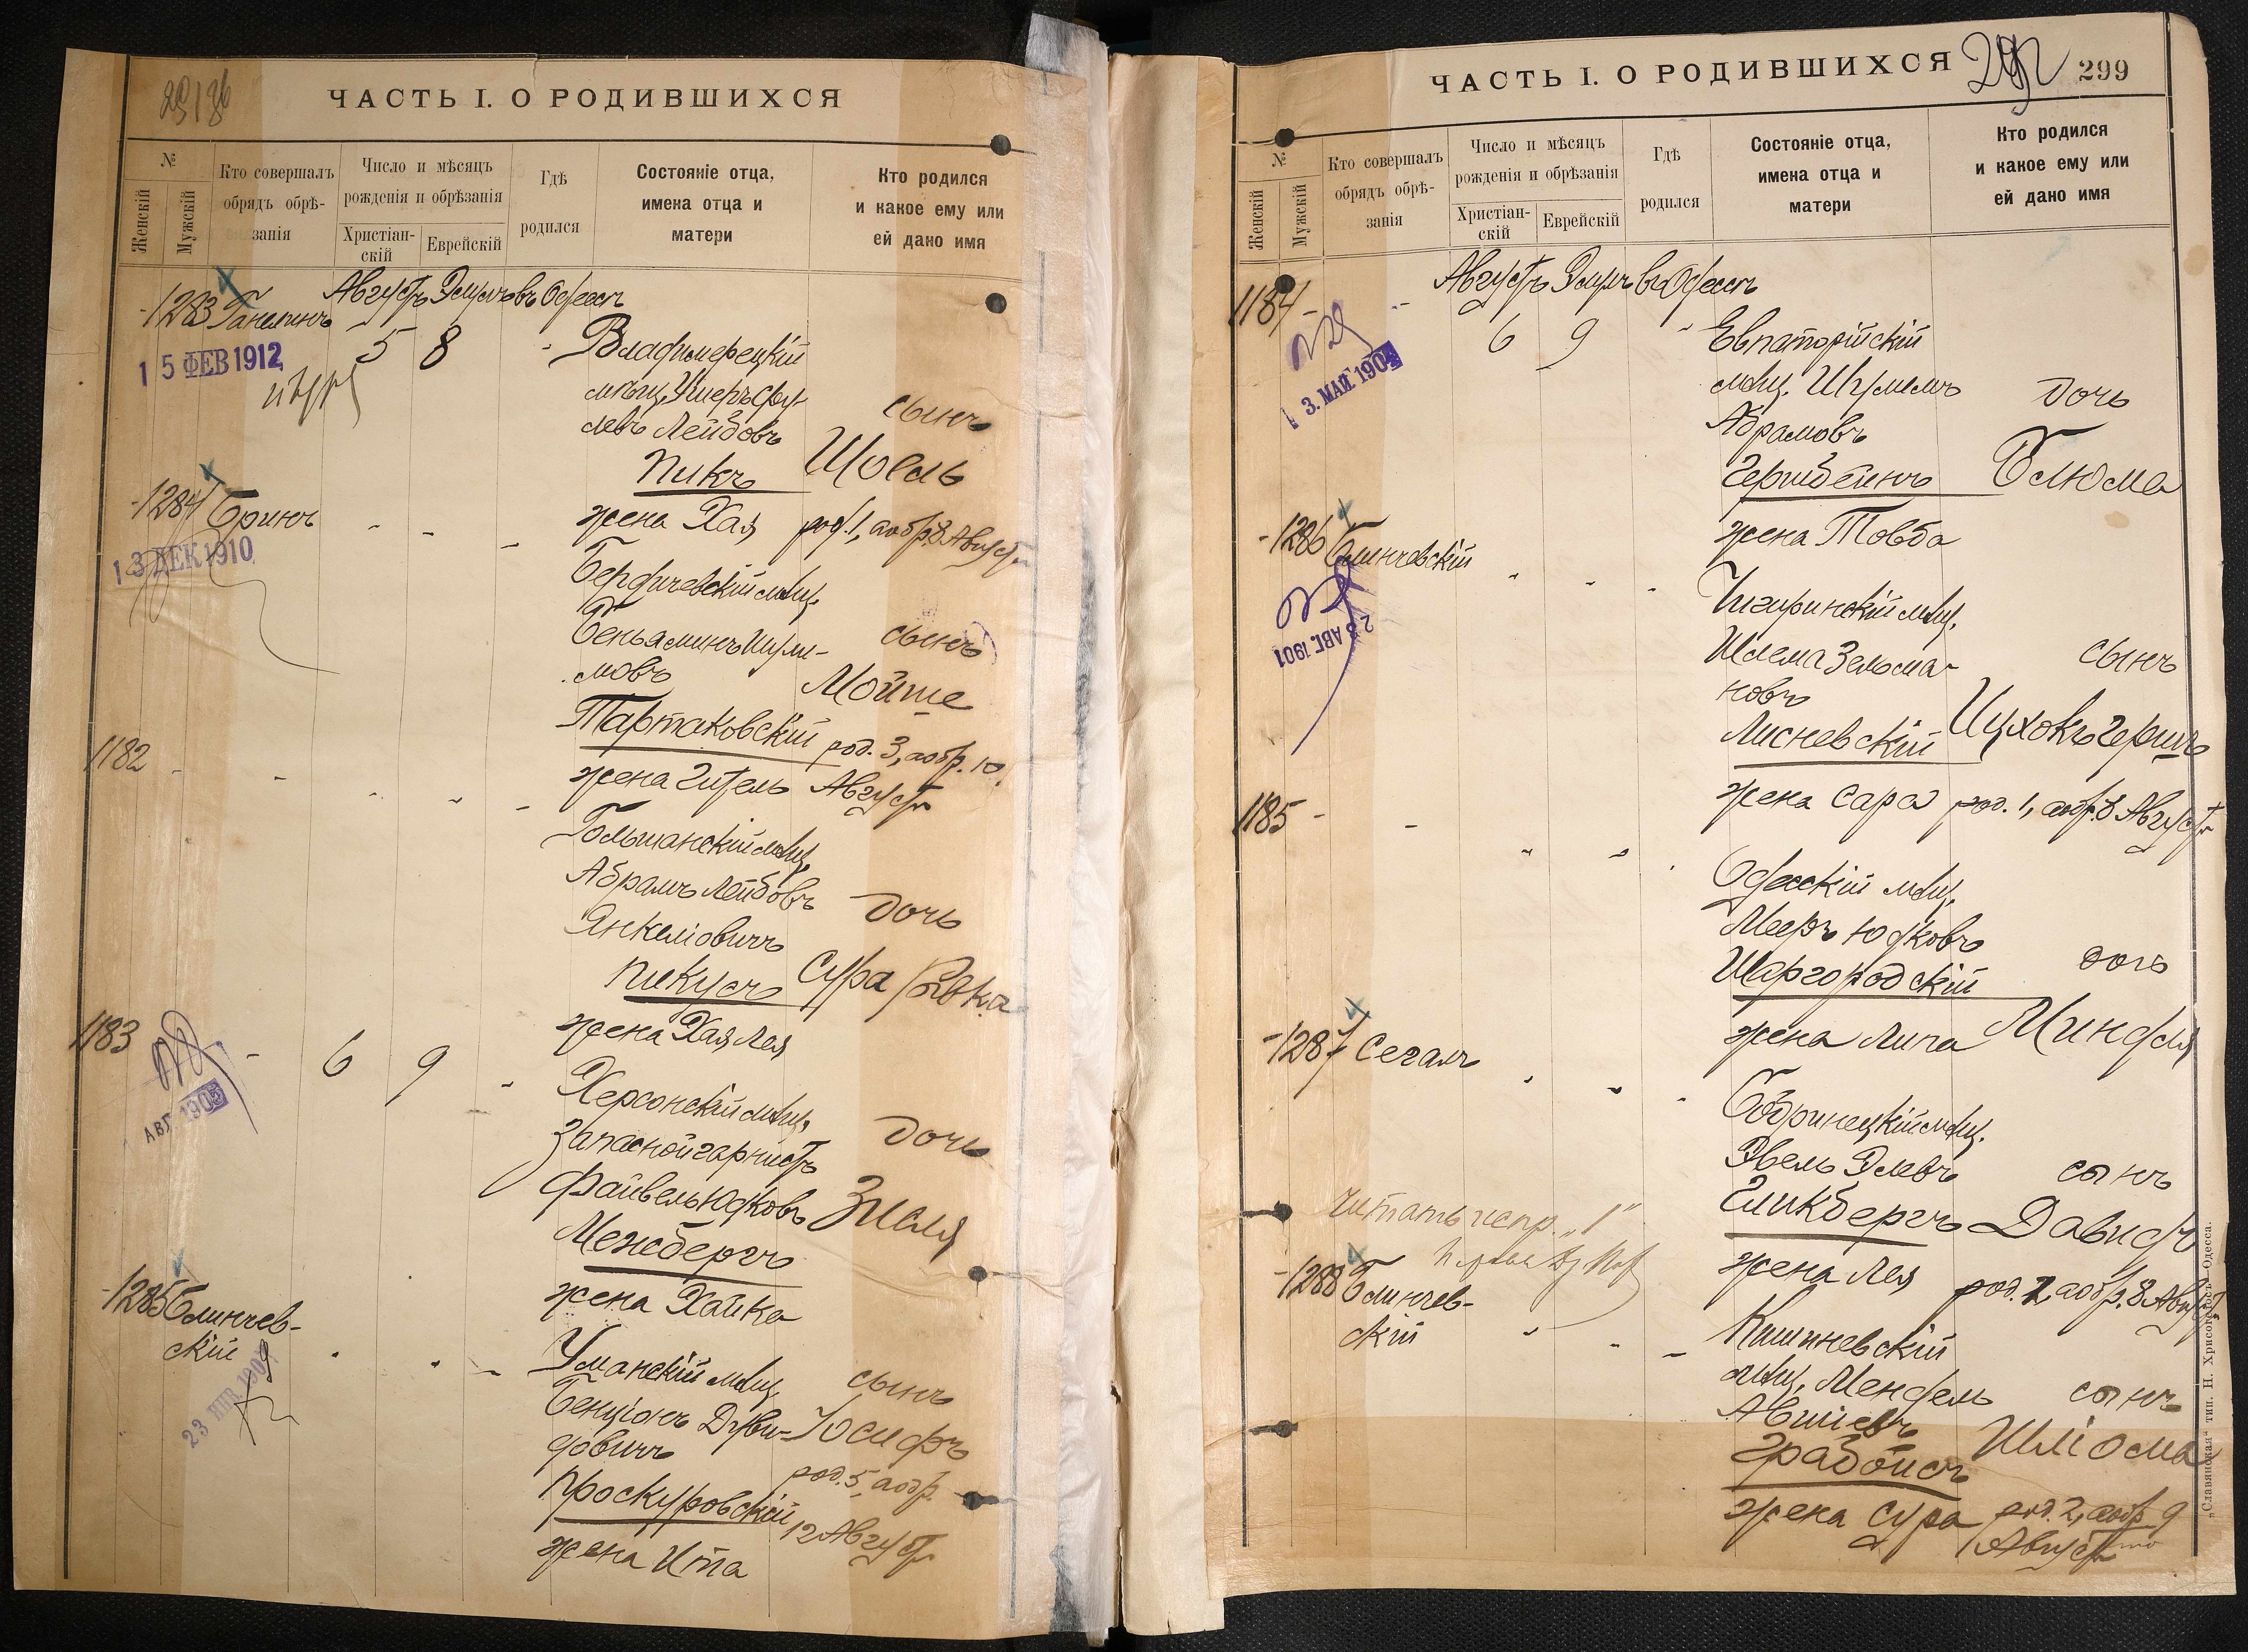 ЧАСТЬ I. О РОДИВШИХСЯ
№
Женскій
Мужскій
Кто совершалъ обрядъ обрѣ-занія
Число и мѣсяцъ рожденія и обрѣзанія
Христіан-скій
Еврейскій
Гдѣ родился
Состояніе отца, имена отца и матери
Кто родился и какое ему или ей дано имя
Августъ Элулъ въ Одессѣ
1283 Ганелинъ
5 8
15 ФЕВ 1912
Владимерецкій
мѣщ.
левъ Лейбовъ
Пикъ
жена Хая
сынъ
Шоель
род. 1, а обр. 8 Августа
1284 Бринъ
13 ДЕК 1910
Бердичевскій мѣщ.
Беньаминъ
мовъ
Тартаковскій
жена Гитель
сынъ
Мойше
род. 3, а обр. 10
Августа
1182
Гольшанскій мѣщ.
Абрамъ Лейбовъ
Янкеліовичъ
Пикусъ
жена Хая Лея
дочь
Сура Ривка
1183
6 9
АВГ 1905
Херсонскій мѣщ.
запасной
Файвель Юдковъ
Менсбергъ
жена Хайка
дочь
Зисля
1285 Блинчев-
скій
23 ЯНВ 190
Уманскій мѣщ.
Бенціонъ Дуви-
довичъ
Проскуровскій
жена Ита
сынъ
Юсифъ
род. 5, а обр.
12 Августа
ЧАСТЬ I. О РОДИВШИХСЯ
299
№
Женскій
Мужскій
Кто совершалъ обрядъ обрѣ-занія
Число и мѣсяцъ рожденія и обрѣзанія
Христіан-скій
Еврейскій
Гдѣ родился
Состояніе отца, имена отца и матери
Кто родился и какое ему или ей дано имя
Августъ Элулъ въ Одессѣ
1184
6 9
13. МАЙ 190
Евпаторійскій
мѣщ.
Абрамовъ
Герцбейнъ
жена Товба
дочь
Блюма
1286 Блинчевскій
23 АВГ. 1901
Чигиринскій мѣщ.
Шлема Зельма-
новъ
Лисневскій
жена Сара
сынъ
Ицхокъ Гершъ
род. 1, а обр. 8 Августа
1185
Одесскій мѣщ.
Мееръ Юдковъ
Шаргородскій
жена Липа
дочь
Миндля
1287 Сегалъ
Бобринецкій мѣщ.
Эвель Элевъ
Гликбергъ
жена Лея
сынъ
Давидъ
род. 1, а обр. 8 Августа
Читать испр. „1"
1288 Блинчев-
скій
Кишиневскій
мѣщ. Мендель
Авшіевъ
Грабойсъ
жена Сура
сынъ
Шліома
род. 2, а обр. 9
Августа
„Славянская" тип. Н. Хрисогелосъ Одесса.